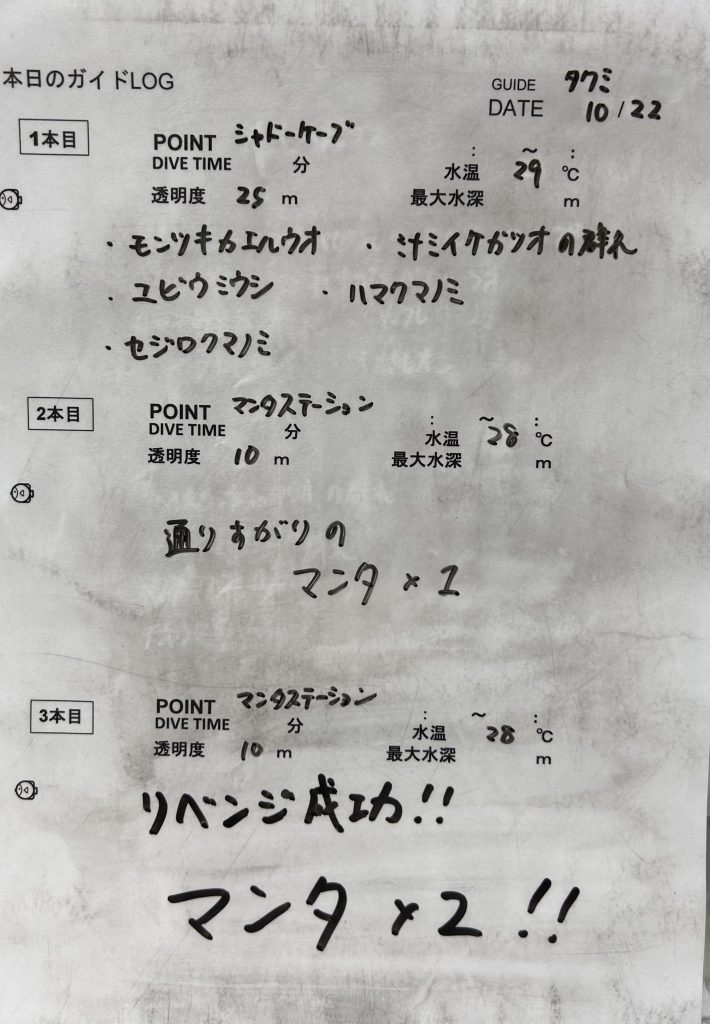 本日のガイドLOG
GUIDE タクミ
DATE 10/22
1本目
POINT シャドーケーブ
: ~ :
DIVE TIME 分
水温 29 ℃
透明度 25 m
最大水深 m
・モンツキカエルウオ ・ミナミイケガツオの群れ
・ユビウミウシ ・ハマクマノミ
・セジロクマノミ
2本目
POINT マンタステーション
: ~ :
DIVE TIME 分
水温 28 ℃
透明度 10 m
最大水深 m
通りすがりの
マンタ×1
3本目
POINT マンタステーション
: ~ :
DIVE TIME 分
水温 28 ℃
透明度 10 m
最大水深 m
リベンジ成功!!
マンタ×2!!